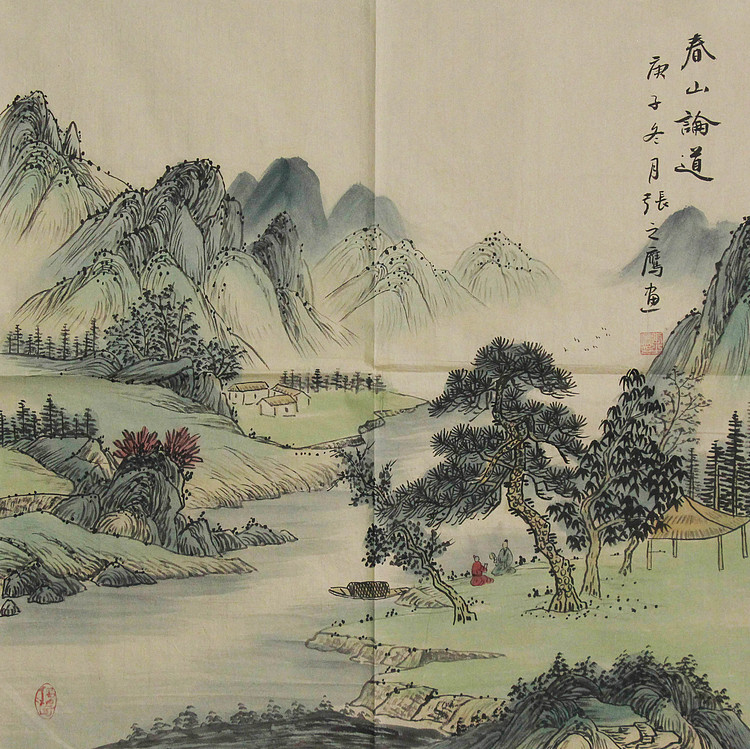 春山論道
庚子冬月張之鷹画